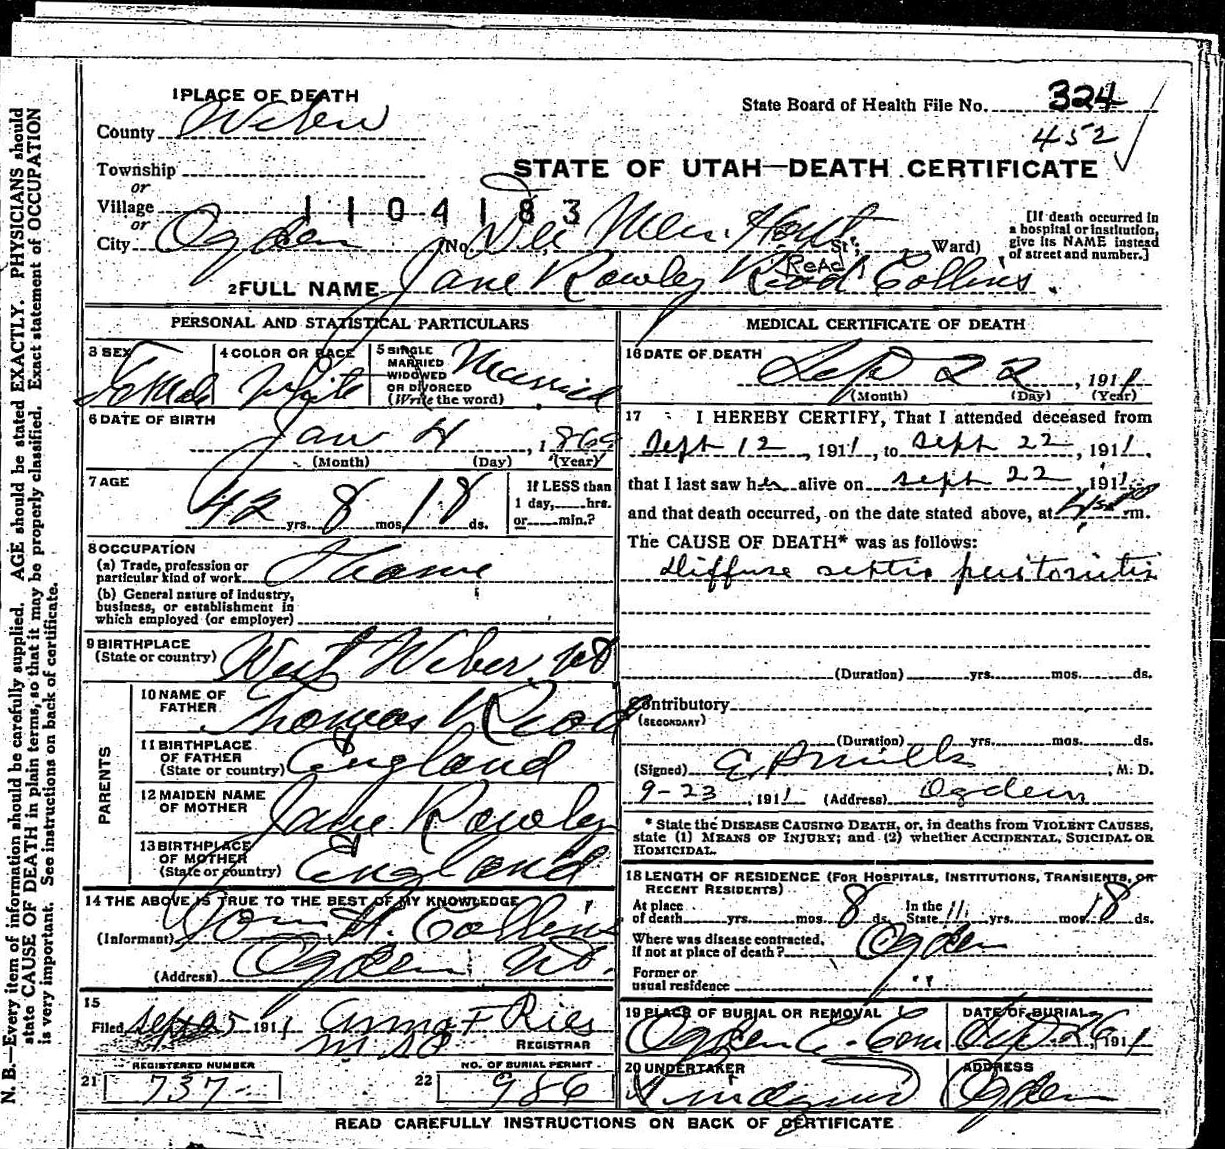 1 PLACE OF DEATH
County Weber
State Board of Health File No. 324
452
Township
or
Village
or
1104183
STATE OF UTAH—DEATH CERTIFICATE
City Ogden (No. Dee Mem. Hospt St.; Ward)
[If death occurred in a hospital or institution, give its NAME instead of street and number.]
Read
2 FULL NAME Jane Rowley Read Collins.
PERSONAL AND STATISTICAL PARTICULARS
3 SEX Female
4 COLOR OR RACE White
5 SINGLE MARRIED WIDOWED OR DIVORCED (Write the word) Married
6 DATE OF BIRTH
Jan 4, 1869
(Month) (Day) (Year)
7 AGE
42 yrs. 8 mos. 18 ds.
If LESS than 1 day, hrs. or min.?
8 OCCUPATION
(a) Trade, profession or particular kind of work
(b) General nature of industry, business, or establishment in which employed (or employer)
9 BIRTHPLACE
(State or country) West Weber, Ut
PARENTS
10 NAME OF FATHER Thomas Read
11 BIRTHPLACE OF FATHER (State or country) England
12 MAIDEN NAME OF MOTHER Jane Rowley
13 BIRTHPLACE OF MOTHER (State or country) England
14 THE ABOVE IS TRUE TO THE BEST OF MY KNOWLEDGE
(Informant) H. Collins
(Address) Ogden Ut.
15
Filed Sept 25 1911 Anna F Ries
REGISTRAR
REGISTERED NUMBER
21 737
NO. OF BURIAL PERMIT
22 986
MEDICAL CERTIFICATE OF DEATH
16 DATE OF DEATH
Sep 22, 1911
(Month) (Day) (Year)
17 I HEREBY CERTIFY, That I attended deceased from
Sept 12, 1911, to Sept 22, 1911,
that I last saw her alive on Sept 22, 1911,
and that death occurred, on the date stated above, at m.
The CAUSE OF DEATH* was as follows:
Diffuse septic peritonitis
(Duration) yrs. mos. ds.
Contributory
(SECONDARY)
(Duration) yrs. mos. ds.
(Signed) Mills M. D.
9-23, 1911 (Address) Ogden
* State the DISEASE CAUSING DEATH, or, in deaths from VIOLENT CAUSES,
state (1) MEANS OF INJURY; and (2) whether ACCIDENTAL, SUICIDAL OR
HOMICIDAL.
18 LENGTH OF RESIDENCE (FOR HOSPITALS, INSTITUTIONS, TRANSIENTS, OR
RECENT RESIDENTS)
At place of death yrs. mos. 8 ds. In the State yrs. mos. 18 ds.
Where was disease contracted, if not at place of death? Ogden
Former or usual residence "
19 PLACE OF BURIAL OR REMOVAL
Ogden C. Cem
DATE OF BURIAL
Sep. 26, 1911
20 UNDERTAKER
ADDRESS
Ogden
READ CAREFULLY INSTRUCTIONS ON BACK OF CERTIFICATE
N. B.—Every item of information should be carefully supplied. AGE should be stated EXACTLY. PHYSICIANS should
state CAUSE OF DEATH in plain terms, so that it may be properly classified. Exact statement of OCCUPATION
is very important. See instructions on back of certificate.